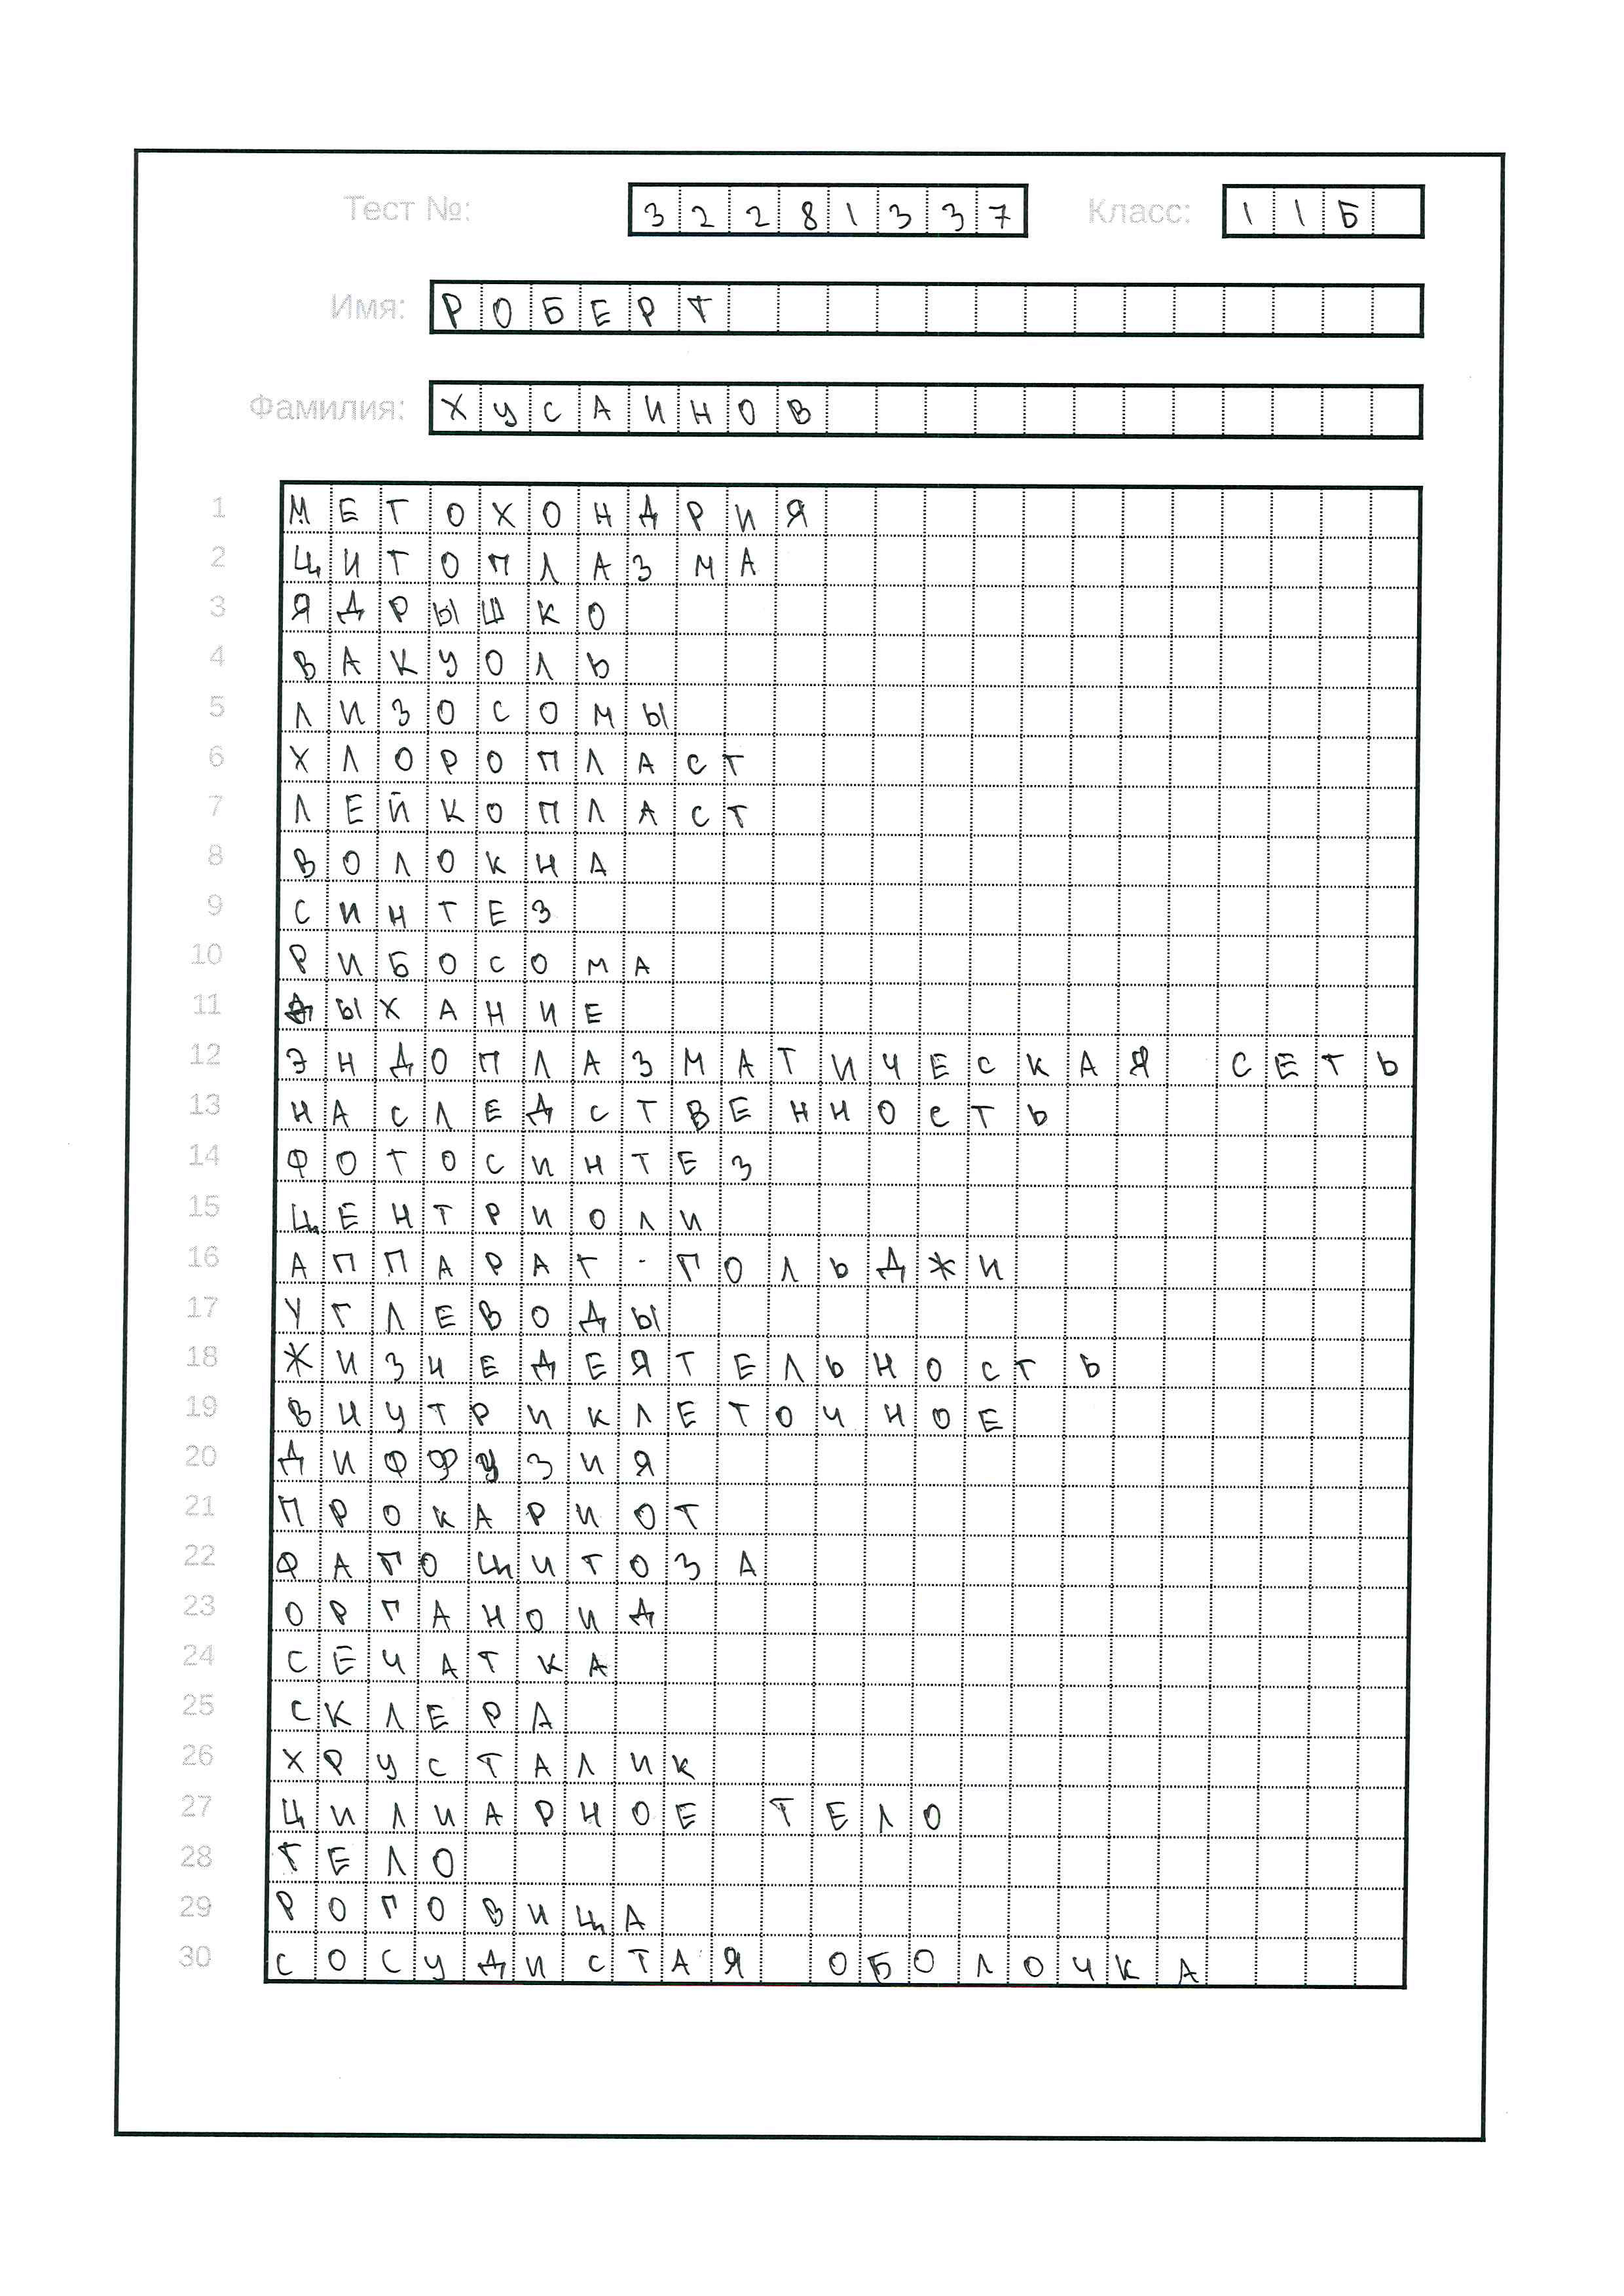 Тест №: 32281337 Класс: 11Б
Имя: РОБЕРТ
Фамилия: ХУСАИНОВ
1 МЕТОХОНДРИЯ
2 ЦИТОПЛАЗМА
3 ЯДРЫШКО
4 ВАКУОЛЬ
5 ЛИЗОСОМЫ
6 ХЛОРОПЛАСТ
7 ЛЕЙКОПЛАСТ
8 ВОЛОКНА
9 СИНТЕЗ
10 РИБОСОМА
11 ДЫХАНИЕ
12 ЭНДОПЛАЗМАТИЧЕСКАЯ СЕТЬ
13 НАСЛЕДСТВЕННОСТЬ
14 ФОТОСИНТЕЗ
15 ЦЕНТРИОЛИ
16 АППАРАТ-ГОЛЬДЖИ
17 УГЛЕВОДЫ
18 ЖИЗНЕДЕЯТЕЛЬНОСТЬ
19 ВНУТРИКЛЕТОЧНОЕ
20 ДИФФУЗИЯ
21 ПРОКАРИОТ
22 ФАГОЦИТОЗА
23 ОРГАНОИД
24 СЕЧАТКА
25 СКЛЕРА
26 ХРУСТАЛИК
27 ЦИЛИАРНОЕ ТЕЛО
28 ТЕЛО
29 РОГОВИЦА
30 СОСУДИСТАЯ ОБОЛОЧКА